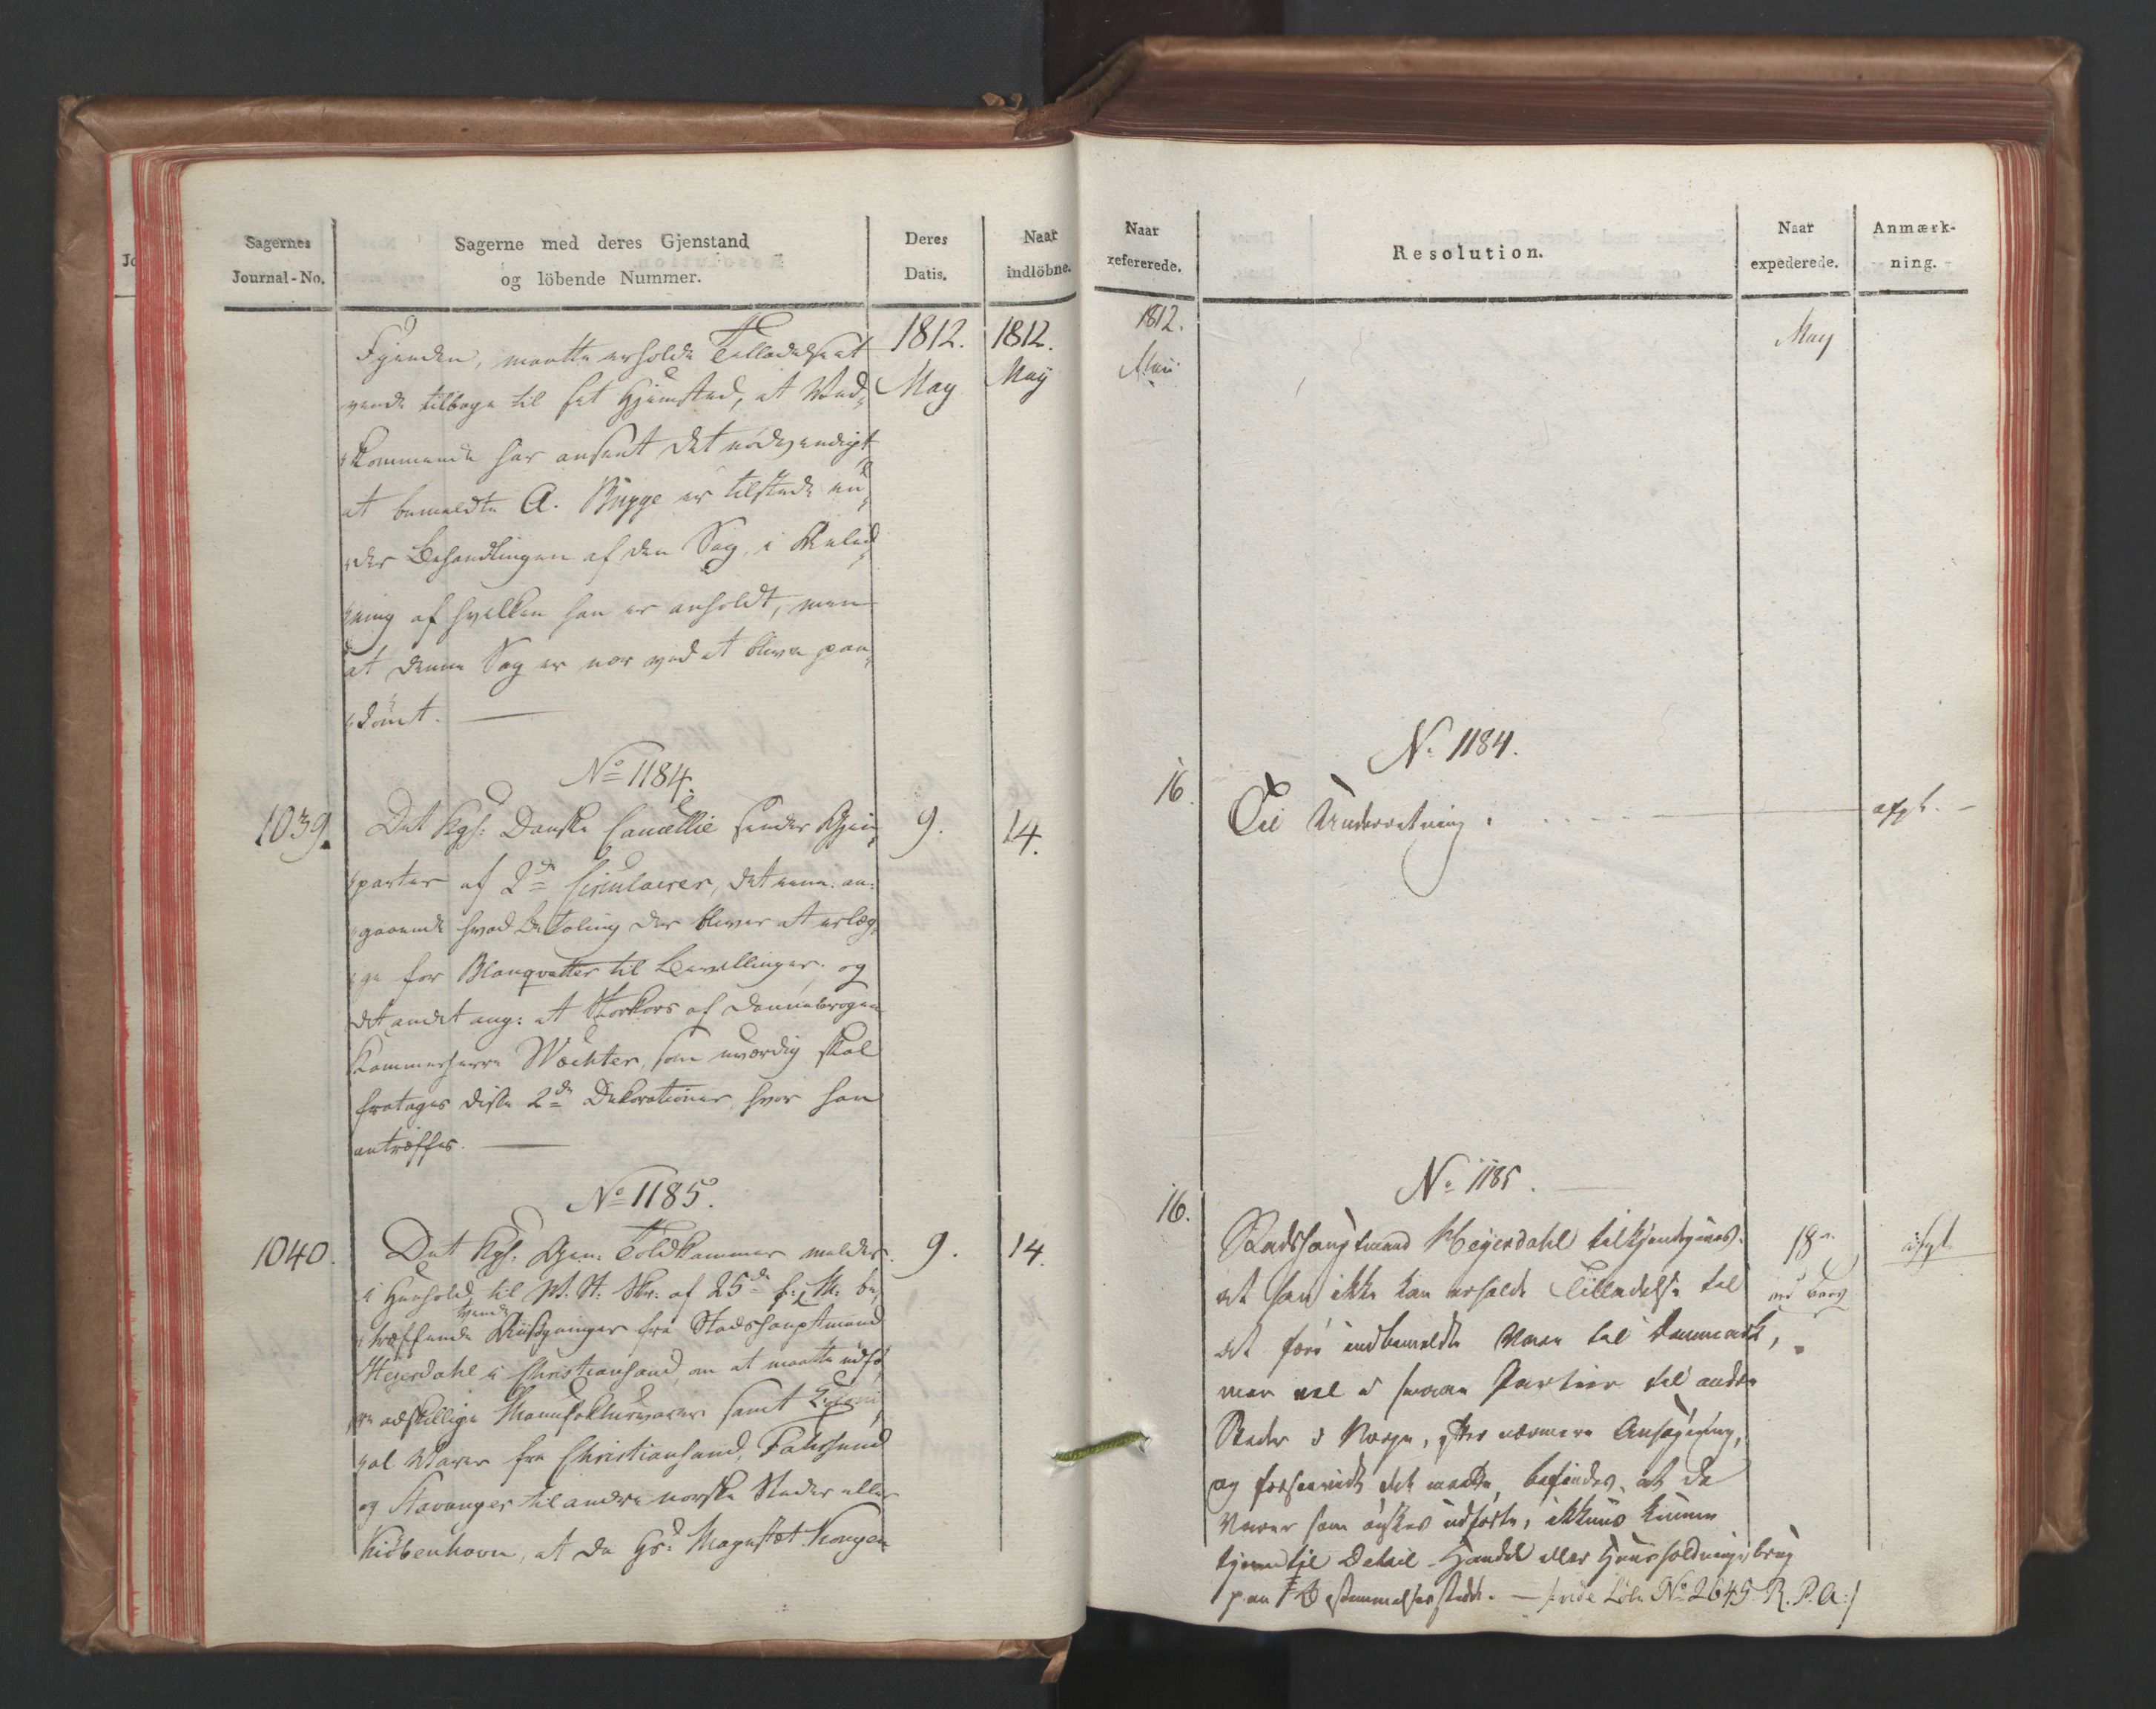 Sagernes
Journal-No.
Sagerne med deres Gjenstand
og löbende Nummer.
Deres
Datis.
Naar
indlöbne.
1812. 1812.
May May
Fjenden, maatte erholde Tilladelse at
vende tilbage til sit Hjemsted, at Ved-
kommende har anseet det nødvendigt
at bemeldte A. Bugge er tilstede un-
der Behandlingen af den Sag, i Anled-
ning af hvilken han er anholdt, men
at denne Sag er nær ved at blive paa-
dömt.
No 1184.
1039. Det Kgl: Danske Cancellie sender Gjen- 9. 14.
parter af 2de Circulairer, det eene an-
gaaende hvad Betaling der bliver at erlæg-
ge for Blanqvetter til Bevillinger, og
det andet ang: at Storkors af Dannebrogen
Kammerherre Wæchter, som uværdig skal
fratages disse 2de Dekorationer, hvor han
antræffes.
No 1185.
1040. Det Kgl. Gen: Toldkammer melder 9. 14.
i Henhold til P. A. Skr: af 25de f: M. be-
træffende tvende Ansøgninger fra Stadshauptmand
Heyerdahl i Christiansand, om at maatte udfø-
re adskillige Manufakturvarer samt Coloni-
al Varer fra Christiansand, Fahrsund
og Stavanger til andre norske Steder eller
Kiöbenhavn, at da Hs: Majestæt Kongen
Naar
refererede.
Resolution.
Naar
expederede.
Anmærk-
ning.
1812.
Maii
May
No 1184.
16. Til Underretning. afgl.
No 1185.
16. Stadshauptmand Heyerdahl tilkjendegives 18de afgl.
at han ikke kan erholde Tilladelse til
at føre indbemeldte Varer til Danmark,
men vel i smaae Partier til andre
Steder i Norge, efter nærmere Ansøgning,
og forsaavidt det maatte befindes, at de
Varer som ønskes udførte, ikkuns kunne
tjene til Detail-Handel eller Huusholdningsbrug
paa Bestemmelsesstedet. — /: vide Løb. No 2645 R. P. A:/